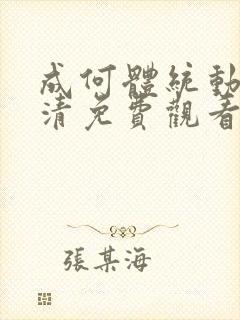 成何體統動
清免費觀看
張某海